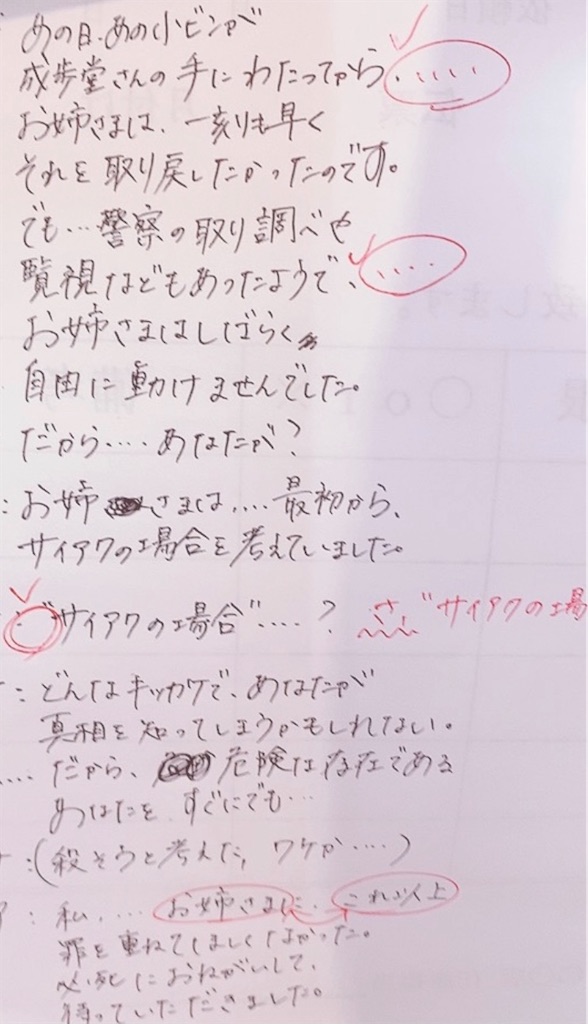 あの日、あの小ビンが
成歩堂さんの手にわたってから.....
お姉さまは、一刻も早く
それを取り戻したかったのです。
でも...警察の取り調べや
監視などもあったようで、....
お姉さまはしばらく
自由に動けませんでした。
だから....あなたが？
：お姉さまは....最初から、
サイアクの場合を考えていました。
“サイアクの場合”....？ さ、“サイアクの場
：どんなキッカケで、あなたが
真相を知ってしまうかもしれない。
....だから、危険な存在である
あなたを、すぐにでも...
：（殺そうと考えた、ワケか....）
：私、....お姉さまに、これ以上
罪を重ねてほしくなかった。
必死におねがいして、
待っていただきました。